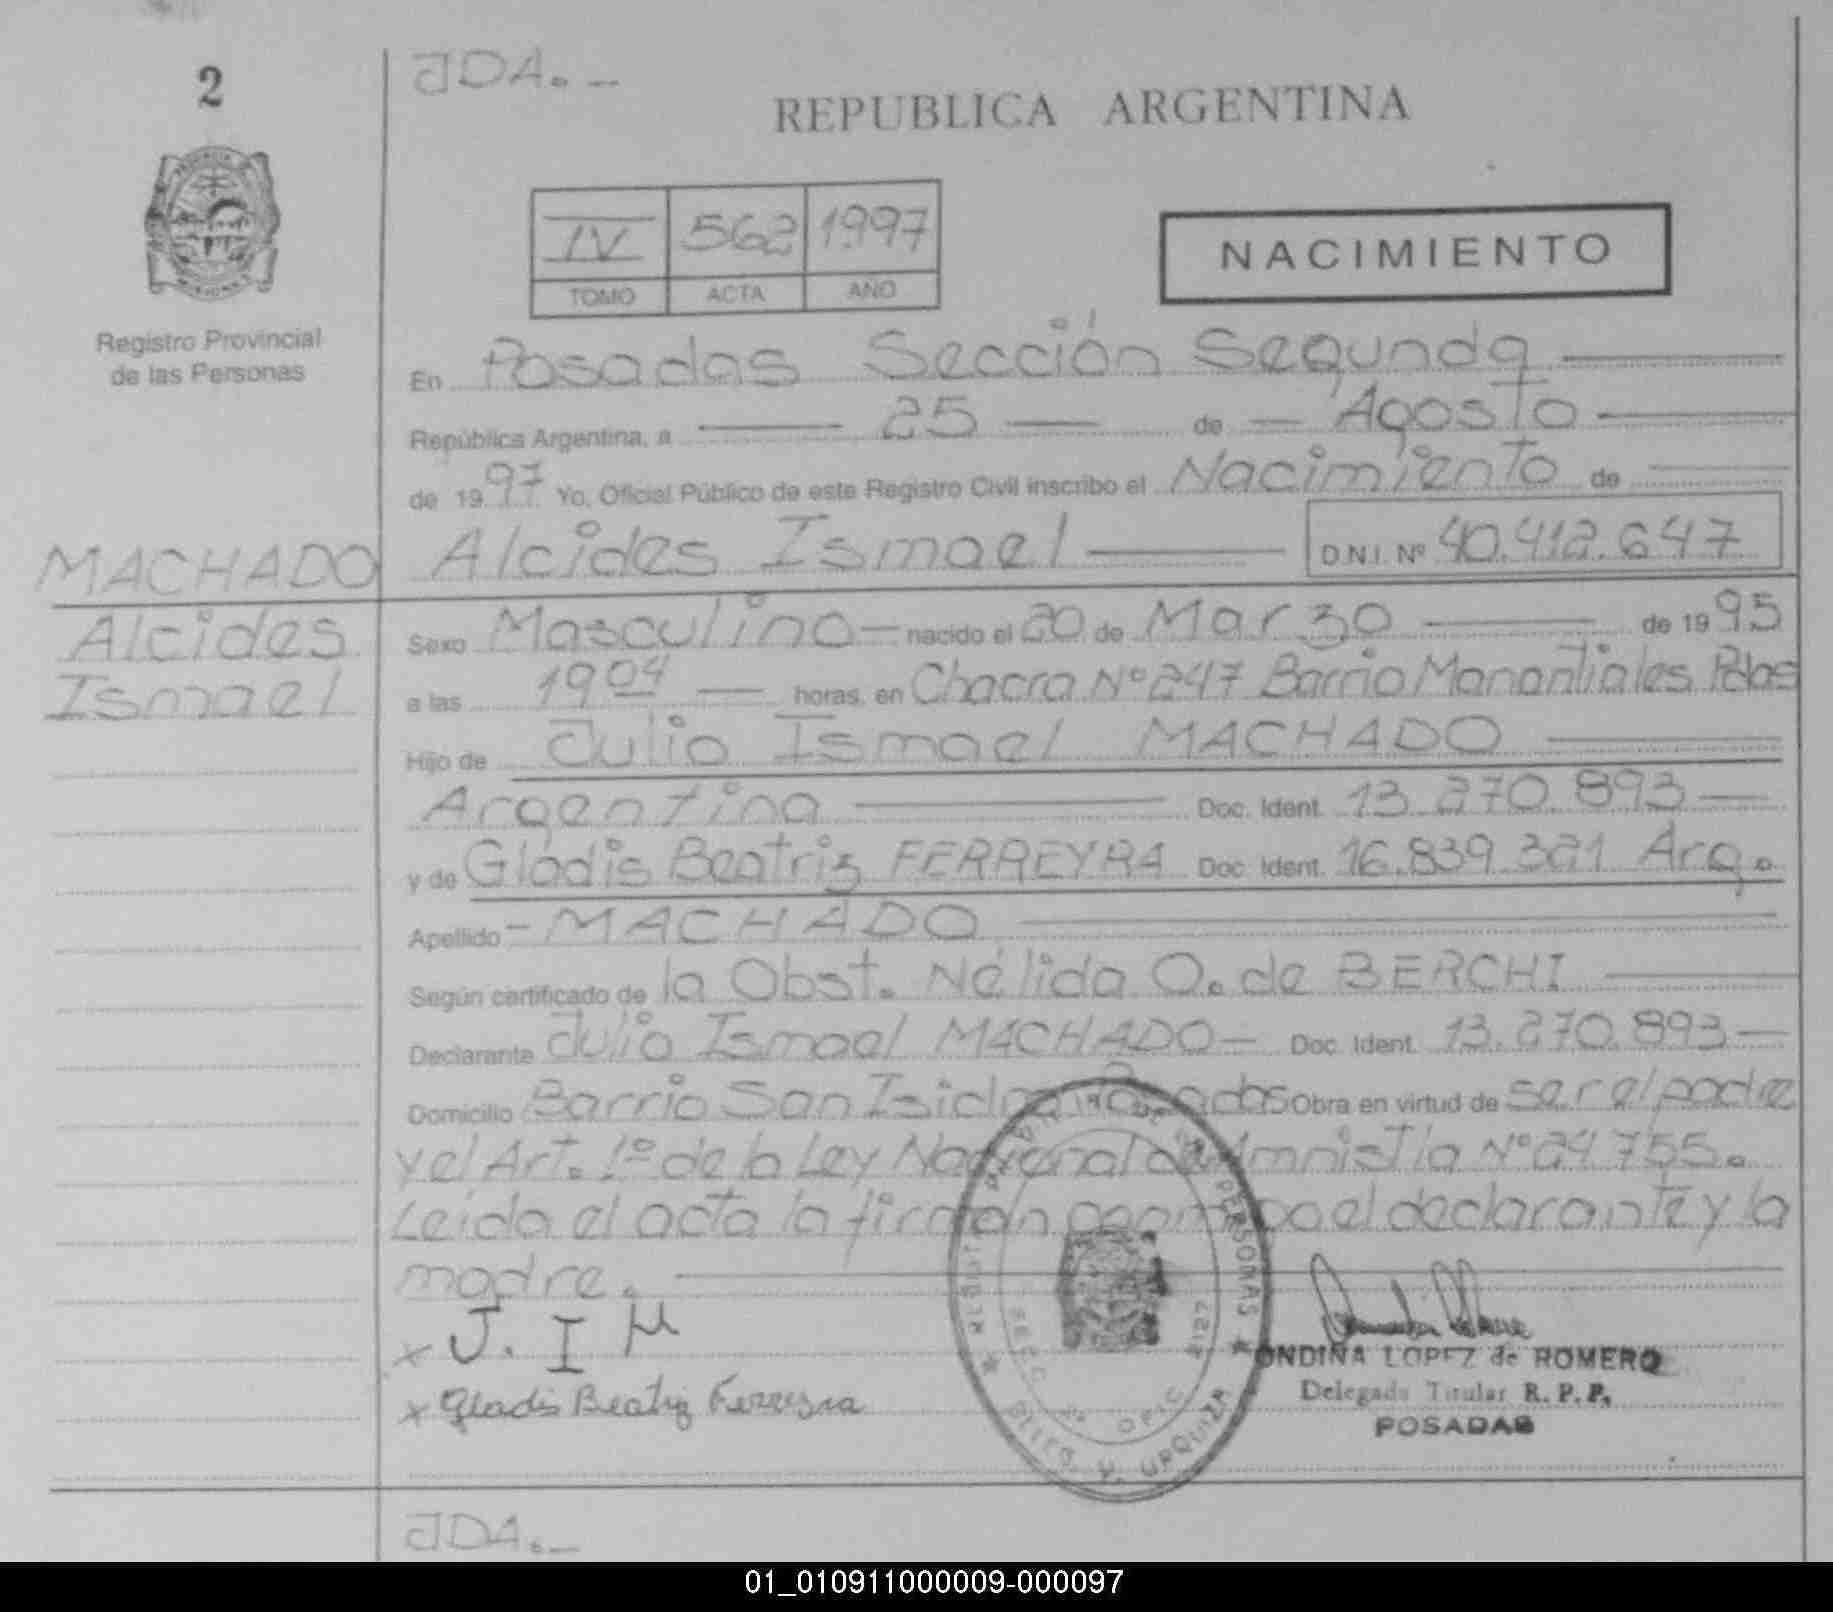 2
JDA.-
REPUBLICA ARGENTINA
IV 562 1997
TOMO ACTA AÑO
NACIMIENTO
Registro Provincial
de las Personas
En Posadas Sección Segunda
República Argentina, a 25 de Agosto
de 1997 Yo, Oficial Público de este Registro Civil inscribo el Nacimiento de
Alcides Ismael D.N.I. Nº 40.412.647
MACHADO
Alcides
Ismael
Sexo Masculino nacido el 20 de Marzo de 1995
a las 19 04 horas, en Chacra Nº 247 Barrio Manantiales Pdas
Hijo de Julio Ismael MACHADO
Argentina Doc. Ident. 13.270.893
y de Gladis Beatriz FERREYRA Doc. Ident. 16.839.321 Arg.
Apellido - MACHADO
Según certificado de la Obst. Nélida O. de BERCHI
Declarante Julio Ismael MACHADO - Doc. Ident. 13.270.893
Domicilio Barrio San Isidro Posadas Obra en virtud de ser el padre
y el Art. 1º de la Ley Nacional de Amnistía Nº 24.755.
Leída el acta la firman el declarante y la
madre.
x J. I M
x Gladis Beatriz Ferreyra
ONDINA LOPEZ de ROMERO
Delegada Titular R. P. P.
POSADAS
DE LAS PERSONAS
SECC 2ª OFIC 2127
URQUIZA
JDA.-
01_010911000009-000097